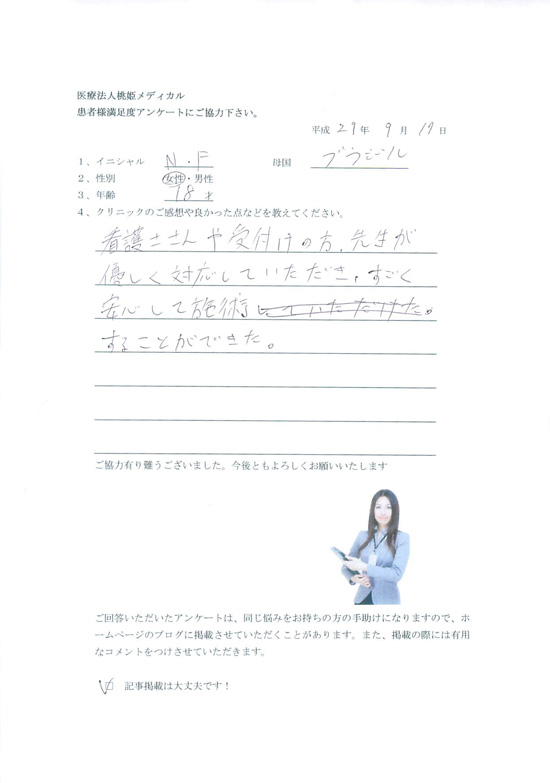 医療法人桃姫メディカル
患者様満足度アンケートにご協力下さい。
平成 29年 9月 19日
1、イニシャル N・F 母国 ブラジル
2、性別 女性・男性
3、年齢 18才
4、クリニックのご感想や良かった点などを教えてください。
看護士さんや受付けの方、先生が
優しく対応していただき、すごく
安心して施術していただけた。
することができた。
ご協力有り難うございました。今後ともよろしくお願いいたします
ご回答いただいたアンケートは、同じ悩みをお持ちの方の手助けになりますので、ホ
ームページのブログに掲載させていただくことがあります。また、掲載の際には有用
なコメントをつけさせていただきます。
記事掲載は大丈夫です！